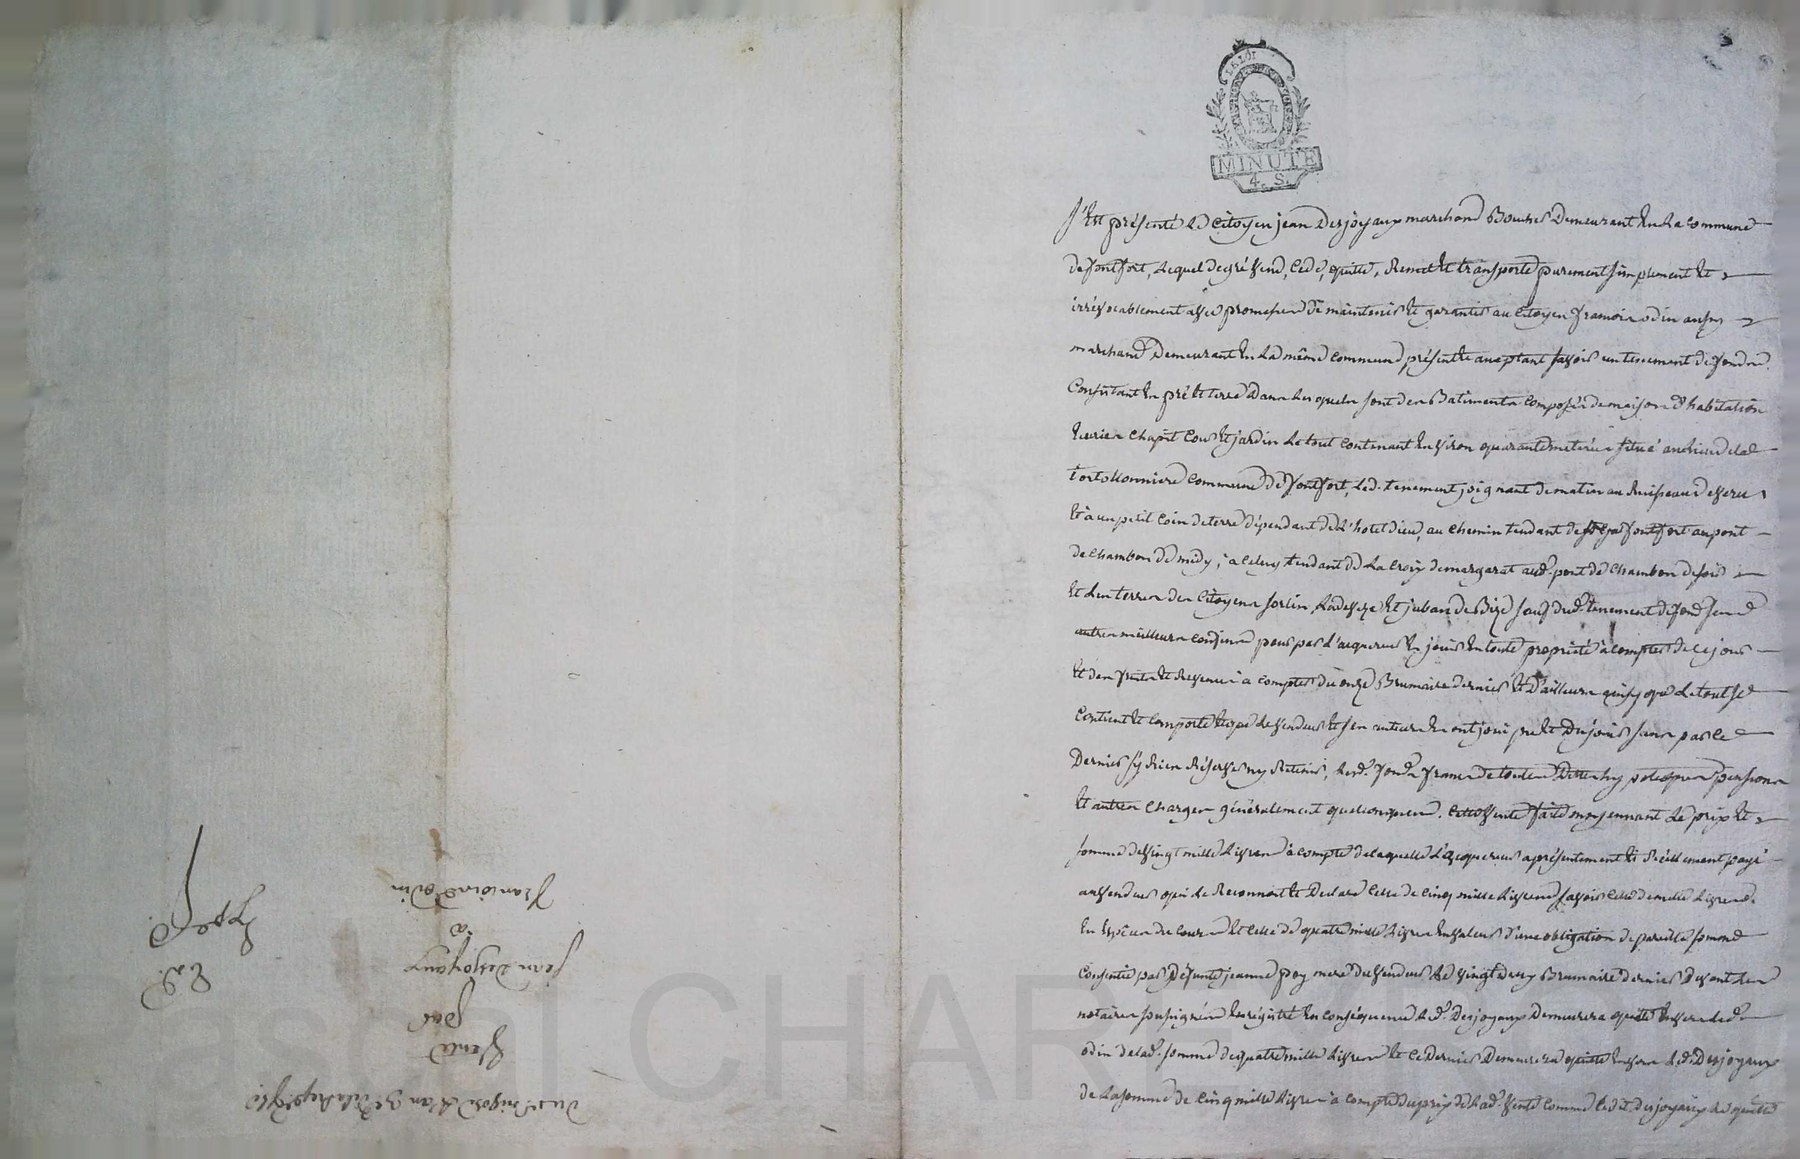 LA LOI
MINUTE
4. S.
S'est présenté le Citoyen jean Desjoyaux marchand Boucher Demeurant En la Commune
de fontfort, lequel de gré vend, Cede, quitte, Remet Et transporte purement simplement Et
irrévocablement avec promesse de maintenir Et garantir au Citoyen francois odin aussy
marchand Demeurant En la même Commune présent Et acceptant savoir un tenement de fonds
Consistant En pré Et terre Dans lesquels sont des Batiments Composés de maison d'habitation
Ecurie Chapit Cour Et jardin le tout Contenant Environ quarante meterées situé au lieu de la
Commune de fontfort, led. tenement joignant de matin au Ruisseau
Et à un petit Coin de terre dépendant de l'hotel dieu, au Chemin tendant de fontfort au pont
de Chambon de midy, à Celuy tendant de la Croix de margarat aud. pont de Chambon de soir
Et les terres des Citoyens sorlin, Et juban de Bize sauf dud. tenement de fonds ses
autres meilleurs Confins pour par l'acquereur En jouir En toute propriété à Compter de Ce jour
Et des fruits Et Revenus à Compter du onze Brumaire dernier Et D'ailleurs ainsy que le tout se
Contient Et Comporte Et que le vendeur Et ses auteurs En ont joui pu Et Du jouir sans par le
Dernier s'y Rien Réserver ny Retenir, lesd. fonds francs de toutes Dettes hypoteques pensions
Et autres Charges généralement quelconques. Cette vente faite moyennant le prix Et
somme de vingt mille livres à Compte de laquelle l'acquereur a présentement Et Réellement payé
au vendeur qui le Reconnoit Et Declare Celle de Cinq mille livres savoir Celle de mille livres
En Espèces de Cours Et Celle de quatre mille livres En valeur d'une obligation de pareille somme
Consentie par Défunte jeanne poy mere du vendeur le vingt deux Brumaire dernier Devant les
notaires soussignés Enregistré En Conséquence led. Desjoyaux Demeurera quitte Envers led.
odin de lad. somme de quatre mille livres Et Ce Dernier Demeurera quitte Envers led. Desjoyaux
de la somme de Cinq mille livres à Compte du prix de lad. vente Comme led. Desjoyaux le quitte
nivose L'an 3e de la Rep.
Vente
par
jean Desjoyaux
à
francois Odin
Exp.